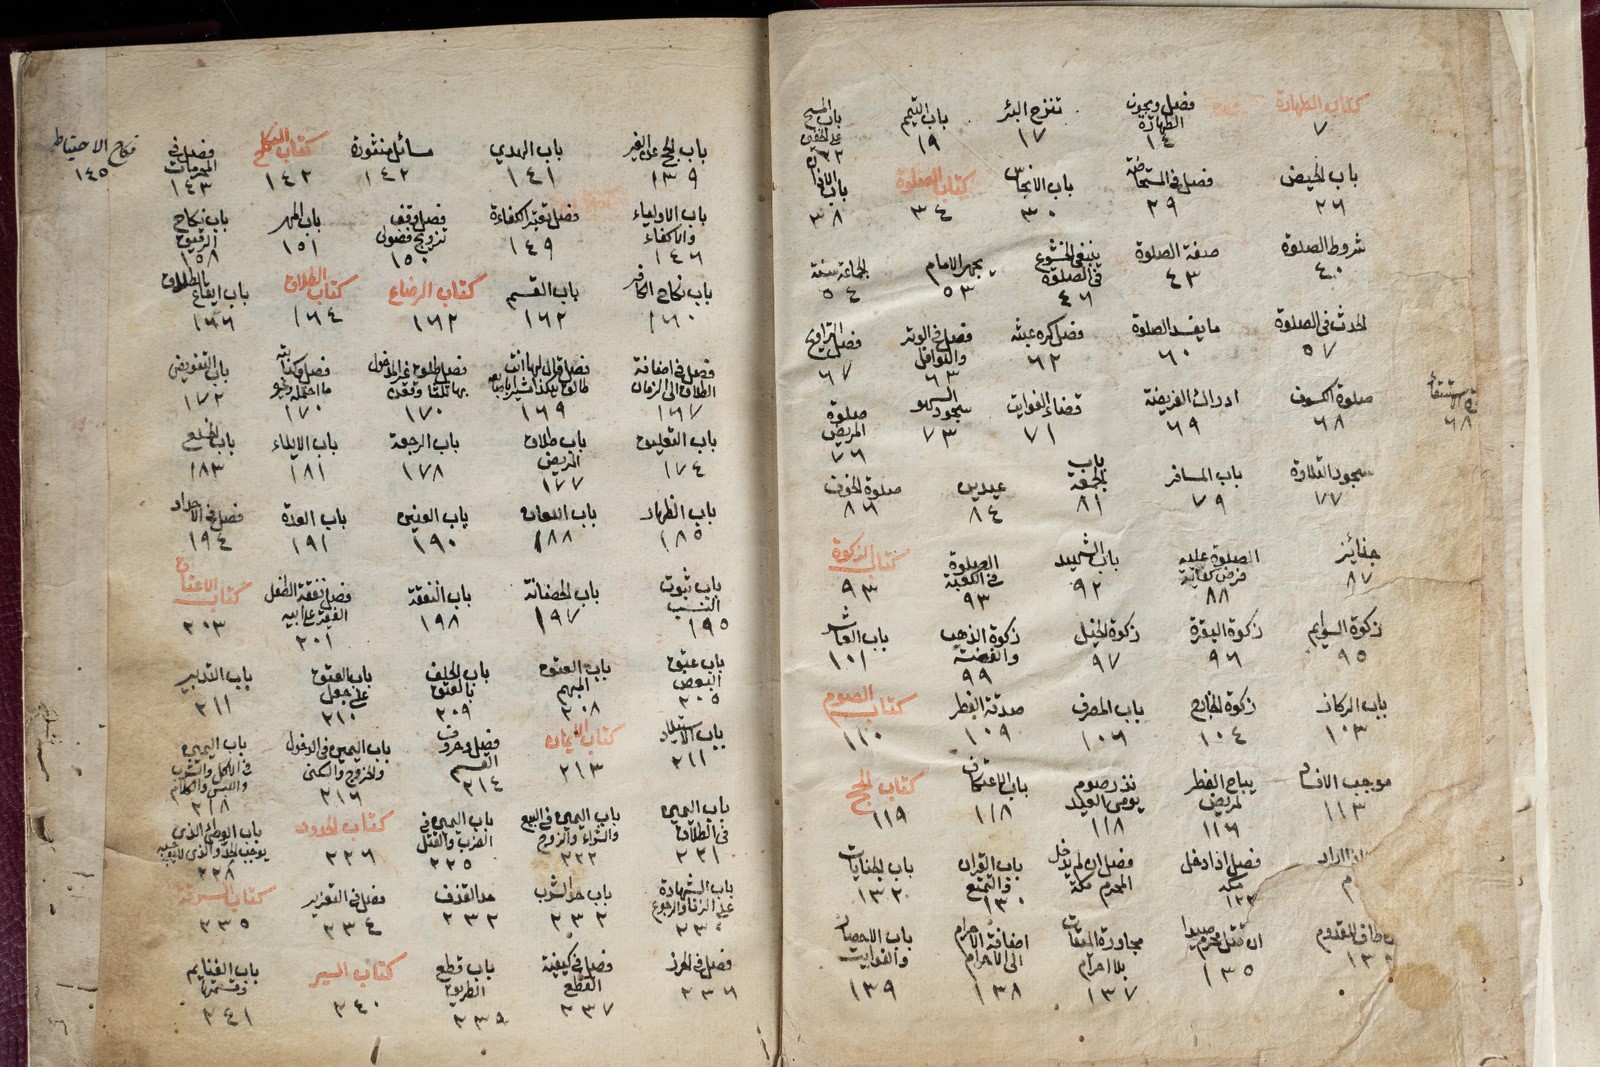 كتاب الطهارة
٧
فصل ويجوز الطهارة
١٤
تنزح البئر
١٧
باب التيمم
١٩
باب المسح على الخفين
٢٢
باب الحيض
٢٦
فصل في المستحاضة
٢٩
باب الانجاس
٣٠
كتاب الصلوة
٣٤
باب الاذان
٣٨
شروط الصلوة
٤٠
صفة الصلوة
٤٣
ينبغي الخشوع في الصلوة
٤٦
يجهر الامام
٥٣
الجماعة سنة
٥٤
الحدث في الصلوة
٥٧
ما يفسد الصلوة
٦٠
فصل كره عبثه
٦٢
فصل في الوتر والنوافل
٦٣
فصل التراويح
٦٧
استسقاء
٦٨
صلوة الكسوف
٦٨
ادراك الفريضة
٦٩
قضاء الفوايت
٧١
سجود السهو
٧٣
صلوة المريض
٧٦
سجود التلاوة
٧٧
باب المسافر
٧٩
باب الجمعة
٨١
عيدين
٨٤
صلوة الخوف
٨٦
جنائز
٨٧
الصلوة عليه فرض كفاية
٨٨
باب الشهيد
٩٢
الصلوة في الكعبة
٩٣
كتاب الزكوة
٩٣
زكوة السوايم
٩٥
زكوة البقرة
٩٦
زكوة الخيل
٩٧
زكوة الذهب والفضة
٩٩
باب العاشر
١٠١
باب الركاز
١٠٣
زكوة الخارج
١٠٤
باب المصرف
١٠٦
صدقة الفطر
١٠٩
كتاب الصوم
١١٠
موجب الافساد
١١٣
يباح الفطر لمريض
١١٦
نذر صوم يومي العيد
١١٨
باب الاعتكاف
١١٨
كتاب الحج
١١٩
فصل اذا دخل مكة
١٢٣
فصل ان لم يدخل المحرم مكة
باب القران والتمتع
١٣٠
باب الجنايات
١٣٢
طاف للقدوم
ان قتل محرم صيدا
١٣٥
مجاورة الميقات بلا احرام
١٣٧
اضافة الاحرام الى الاحرام
١٣٨
باب الاحصار والفوايت
١٣٩
باب الحج عن الغير
١٣٩
باب الهدي
١٤١
مسائل منثورة
١٤٢
كتاب النكاح
١٤٢
فصل في المحرمات
١٤٣
نكاح الاحتياط
١٤٥
باب الاولياء والاكفاء
١٤٦
فصل تعتبر الكفاءة
١٤٩
فصل وقف تزويج فضولي
١٥٠
باب المهر
١٥١
باب نكاح الرقيق
١٥٨
باب نكاح الكافر
١٦٠
باب القسم
١٦٢
كتاب الرضاع
١٦٢
كتاب الطلاق
١٦٤
باب ايقاع الطلاق
١٦٦
فصل في اضافة الطلاق الى الزمان
١٦٧
فصل قال لها انت طالق هكذا مشيرا باصابعه
١٦٩
فصل طلق غير المدخول بها ثلثا وقعن
١٧٠
فصل وكنايته ما احتمله وغيره
١٧٠
باب التفويض
١٧٢
باب التعليق
١٧٤
باب طلاق المريض
١٧٧
باب الرجعة
١٧٨
باب الايلاء
١٨١
باب الخلع
١٨٣
باب الظهار
١٨٥
باب اللعان
١٨٨
باب العنين
١٩٠
باب العدة
١٩١
فصل في الاحداد
١٩٤
باب ثبوت النسب
١٩٥
باب الحضانة
١٩٧
باب النفقة
١٩٨
فصل نفقة الطفل الفقير على ابيه
٢٠١
كتاب الاعتاق
٢٠٣
باب عتق البعض
٢٠٥
باب العتق المبهم
٢٠٨
باب الحلف بالعتق
٢٠٩
باب العتق على جعل
٢١٠
باب التدبير
٢١١
باب الاستيلاد
٢١١
كتاب الايمان
٢١٣
فصل وحروف القسم
٢١٤
باب اليمين في الدخول والخروج والسكنى
٢١٦
باب اليمين في الاكل والشرب واللبس والكلام
٢١٨
باب اليمين في الطلاق
٢٢١
باب اليمين في البيع والشراء والتزوج
٢٢٣
باب اليمين في الضرب والقتل
٢٢٥
كتاب الحدود
٢٢٦
باب الوطئ الذي يوجب الحد والذي لا يوجبه
٢٢٨
باب الشهادة على الزنا والرجوع
باب حد الشرب
٢٣٢
حد القذف
٢٣٢
فصل في التعزير
٢٣٤
كتاب السرقة
٢٣٥
فصل في الحرز
٢٣٦
فصل في كيفية القطع
٢٣٧
باب قطع الطريق
٢٣٩
كتاب السير
٢٤٠
باب الغنايم وقسمتها
٢٤١